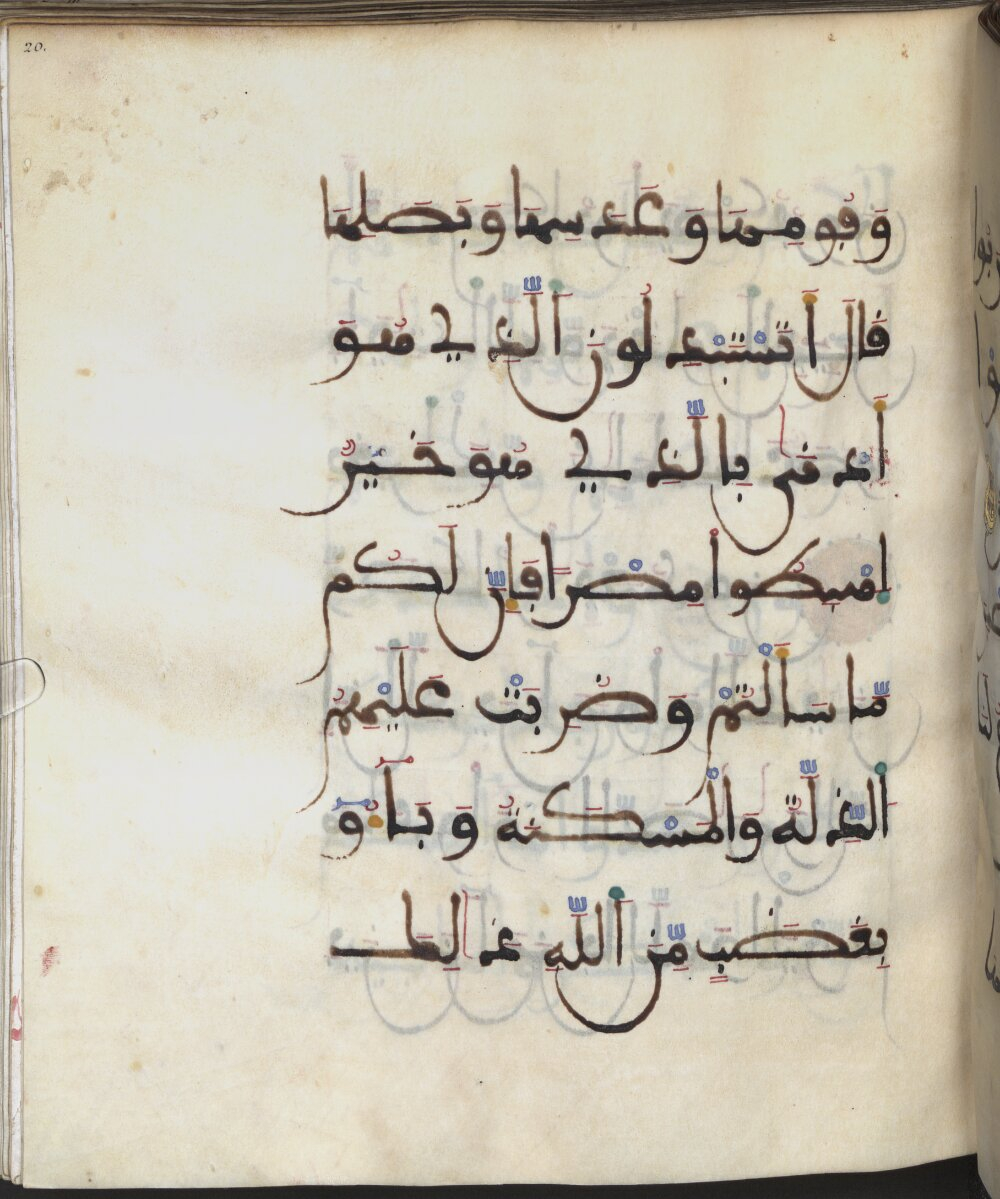 20.
وَفُومِهَا وَعَدَسِهَا وَبَصَلِهَا
قَالَ أَتَسْتَبْدِلُونَ ٱلَّذِي هُوَ
أَدْنَىٰ بِالَّذِي هُوَ خَيْرٌ
ٱهْبِطُوا مِصْرًا فَإِنَّ لَكُم
مَّا سَأَلْتُمْ وَضُرِبَتْ عَلَيْهِمُ
ٱلذِّلَّةُ وَالْمَسْكَنَةُ وَبَآءُو
بِغَضَبٍ مِّنَ ٱللَّهِ ذَٰلِكَ